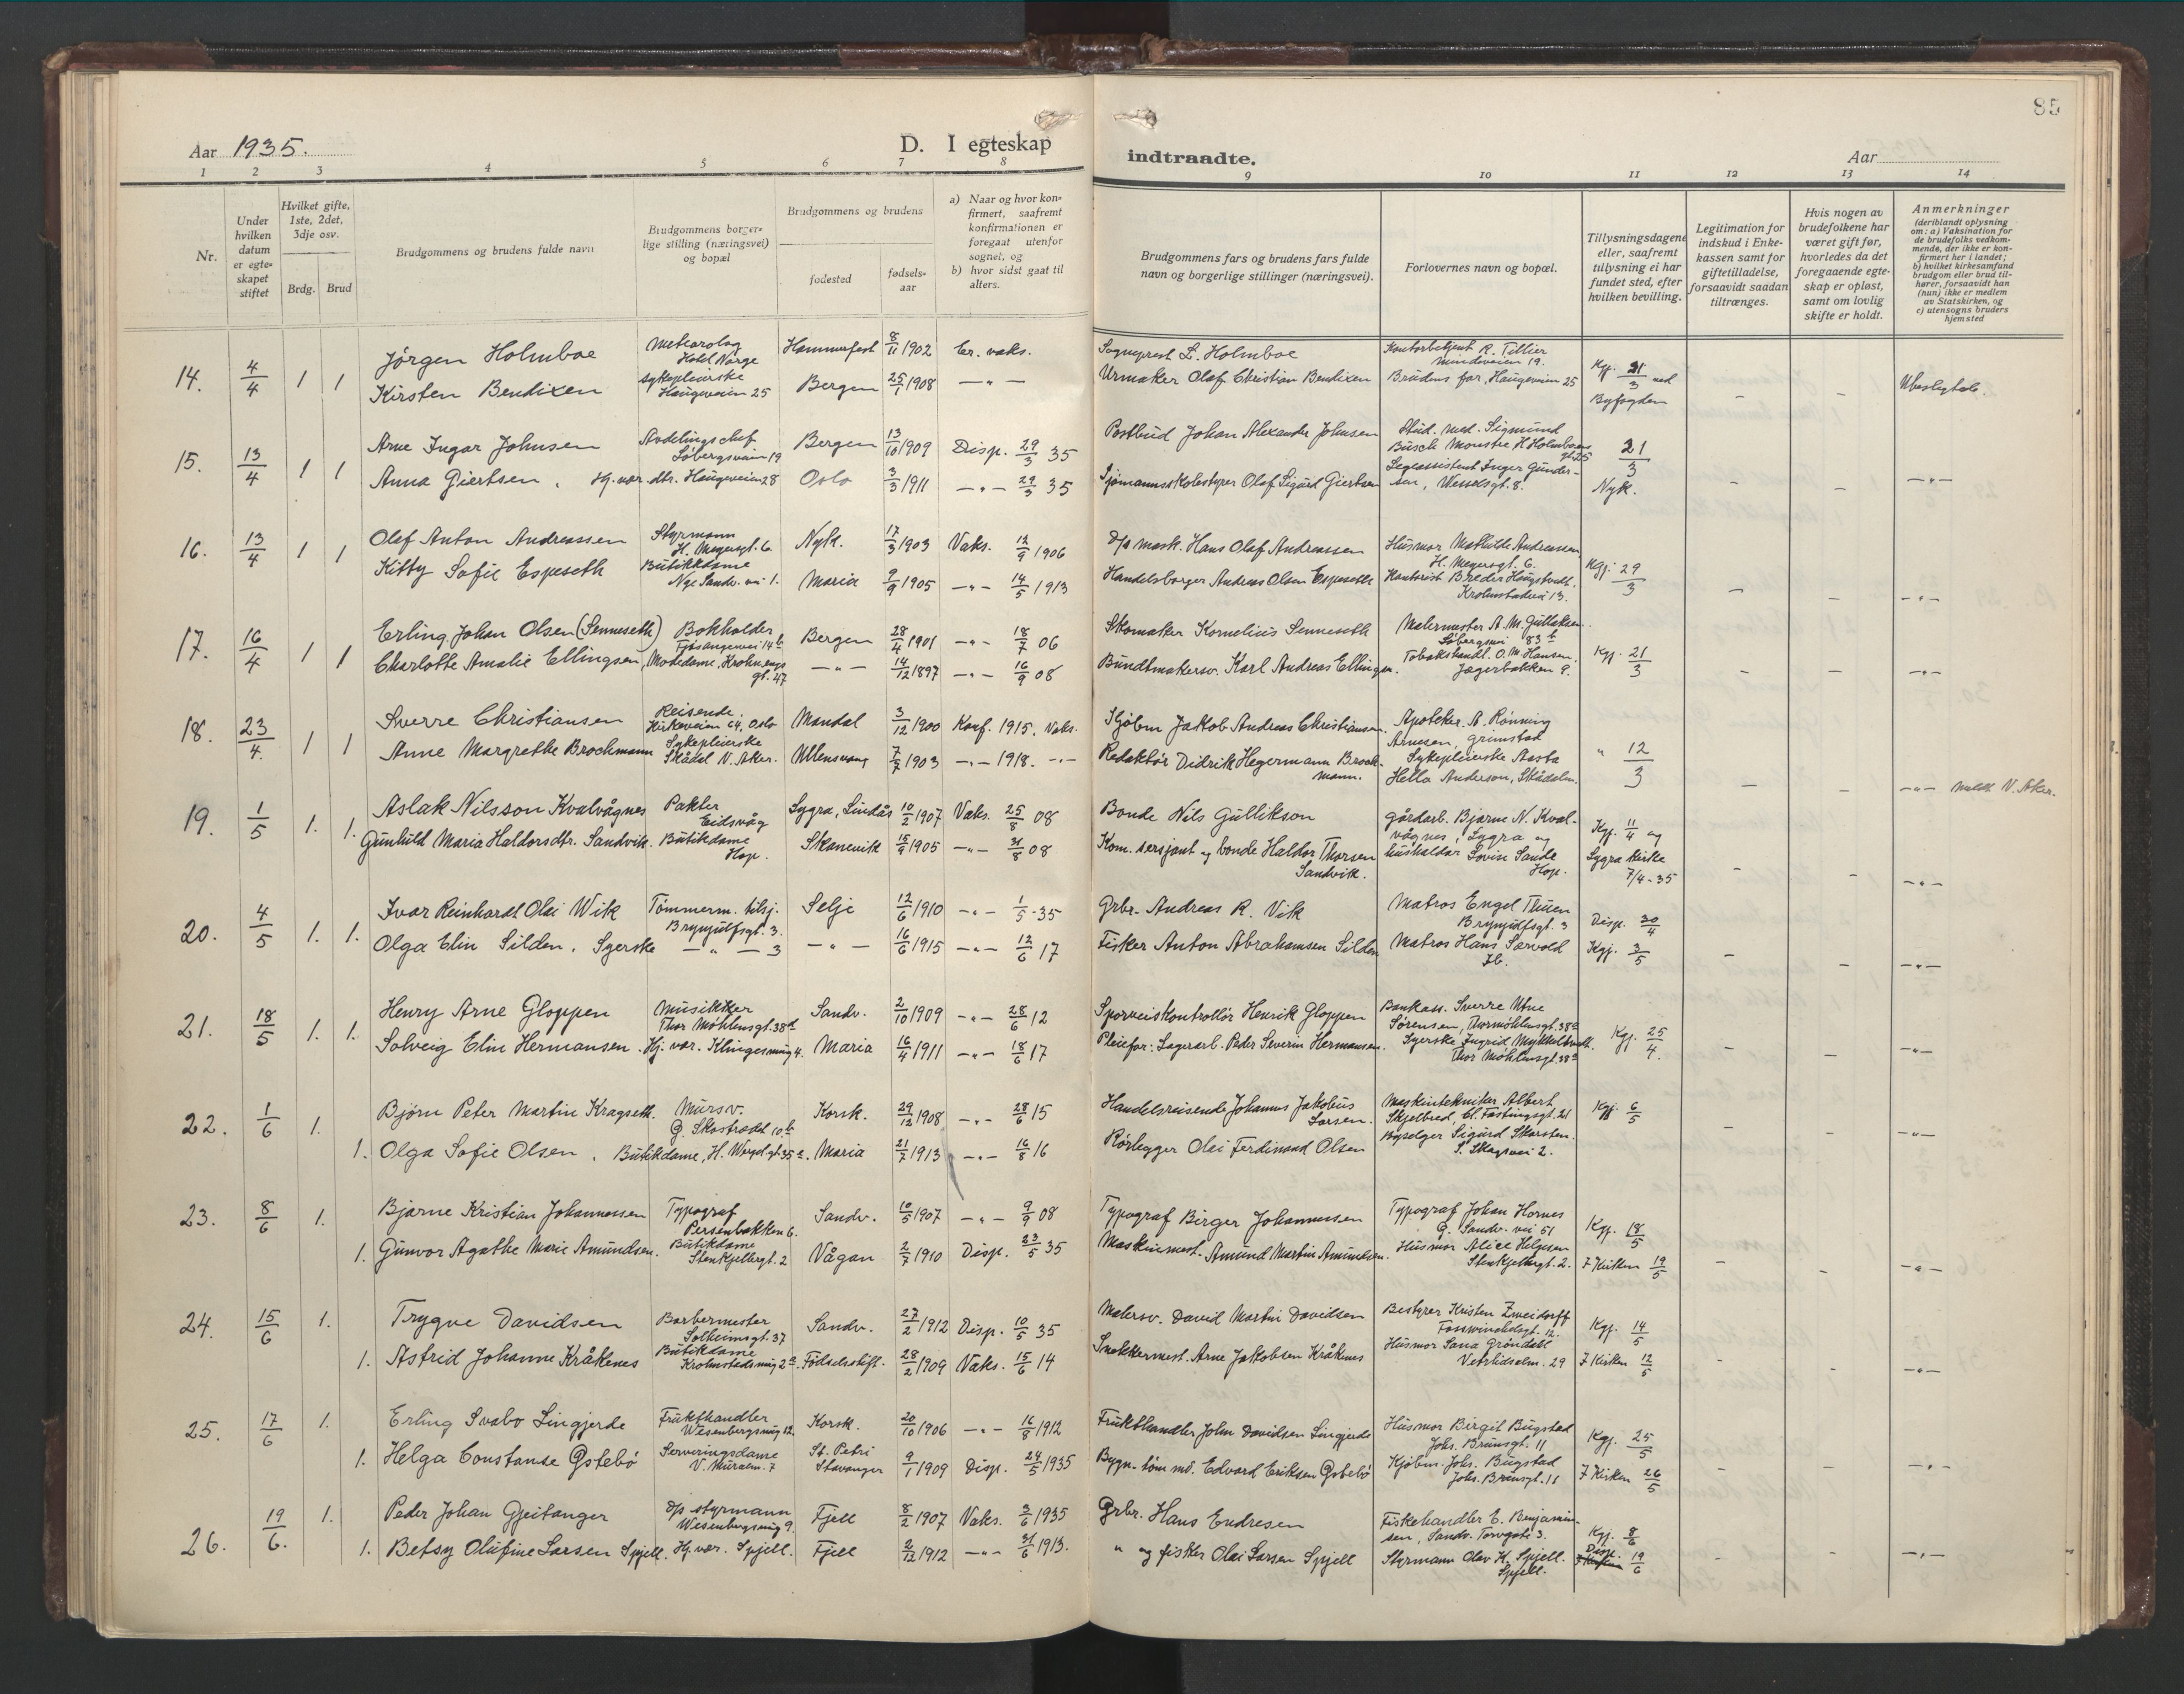 85
Aar 1935.
D. I egteskap
indtraadte.
Aar
1 2 3 4 5 6 7 8 9 10 11 12 13 14
Nr.
Under hvilken datum er egte-skapet stiftet
Hvilket gifte, 1ste, 2det, 3dje osv.
Brdg. Brud
Brudgommens og brudens fulde navn
Brudgommens borger-lige stilling (næringsvei) og bopæl
Brudgommens og brudens
fødested
fødsels-aar
a) Naar og hvor kon-firmert, saafremt konfirmationen er foregaat utenfor sognet, og
b) hvor sidst gaat til alters.
Brudgommens fars og brudens fars fulde navn og borgerlige stillinger (næringsvei).
Forlovernes navn og bopæl.
Tillysningsdagene eller, saafremt tillysning ei har fundet sted, efter hvilken bevilling.
Legitimation for indskud i Enke-kassen samt for giftetilladelse, forsaavidt saadan tiltrænges.
Hvis nogen av brudefolkene har været gift før, hvorledes da det foregaaende egte-skap er opløst, samt om lovlig skifte er holdt.
Anmerkninger
(deriblandt oplysning om: a) Vaksination for de brudefolks vedkom-mende, der ikke er kon-firmert her i landet; b) hvilket kirkesamfund brudgom eller brud til-hører, forsaavidt han (hun) ikke er medlem av Statskirken, og c) utensogns bruders hjemsted
14. 4/4 1 1 Jörgen Holmboe Meteorolog Hotel Norge Hammerfest 8/11 1902 Er. vaks. Sogneprest L. Holmboe Kontorbetjent R. Tillier Mindeveien 19. Kgj. 31/3 ved
Kirsten Bendixen Sykepleierske Haugeveien 25 Bergen 25/7 1908 — " — Urmaker Olaf Christian Bendixen Brudens far, Haugeveien 25 Byfogden Ubeslegtede.
15. 13/4 1 1 Arne Ingar Johnsen Avdelingschef Söbergsveien 19 Bergen 13/10 1909 Disp. 29/3 35 Postbud Johan Alexander Johnsen Stud. med. Sigmund Busch Monstre H Holmboesgt 25 21/3
Anna Giertsen . Hj. vær. dtr. Haugeveien 28 Oslo 3/3 1911 — " — 29/3 35 Sjømannsskolestyrer Olaf Sigurd Giertsen Legeassistent Inger Gunder-sen, Wesselsgt. 8. Nyk. — " —
16. 13/4 1 1 Olaf Anton Andreassen Styrmann H. Meyersgt. 6 Nyk. 17/3 1903 Vaks. 12/9 1906 D/s mask. Hans Olaf Andreassen Husmor Mathilde Andreassen H. Meyersgt. 6. Kgj. 29/3
Kitty Sofie Espeseth Butikkdame Nye Sandv. vei 1. Maria 9/9 1905 — " — 14/5 1913 Handelsborger Andreas Olsen Espeseth Kontorist Kronstadvei 13. — " —
17. 16/4 1 1 Erling Johan Olsen (Senneseth) Bokholder Fjøsangervei 14b Bergen 28/4 1901 — " — 18/7 06 Skomaker Kornelius Senneseth Malermester A. M. Gulleksen Söbergsvei 83b Kgj. 21/3
Charlotte Amalie Ellingsen, Modedame, Krohnengsgt. 47 — " — 14/12 1897 — " — 16/9 08 Bundtmakersv. Karl Andreas Ellingsen. Tobakshandl. O. M. Hansen, Jægerbakken 9. — " —
18. 23/4. 1 1 Sverre Christiansen Reisende. Kirkeveien 64, Oslo Mandal 3/12 1900 Konf. 1915. Vaks. Kjöbm Jakob Andreas Christiansen. Apoteker. A. Rönning Arnesen, Grimstad " 12/3
Anne Margrethe Brochmann Sykepleierske Skådal V. Aker. Ullensvang 7/7 1903 — " — 1918. — " — Redaktör Didrik Hegermann Broch-mann. Sykepleierske Aasta Hella Anderson, Skådalen. — " — V. Aker.
19. 1/5 1. 1. Aslak Nilsson Kvalvågnes Pakter Eidsvåg Lygra, Lindås 10/2 1907 Vaks. 25/8 08 Bonde Nils Gullikson gårdarb. Bjarne N. Kval-vågnes, Lygra og Kgj. 11/4 og
Gunhild Maria Haldorsdtr. Sandvik. Butikdame Hop. Skånevik 15/9 1905 — " — 31/8 08 Kom. sersjant og bonde Haldor Thorsen Sandvik. husholder Lovise Sande Hop. Lygra kirke 7/4 - 35 — " —
20. 4/5 1. 1. Ivar Reinhardt Olai Wik Tömmerm. tilsj. Brynjulfsgt. 3. Selje 12/6 1910 — " — 1/5 - 35 Grbr. Andreas R. Vik Matros Engel Thuen Brynjulfsgt. 3 Disp. 30/4
Olga Elin Silden. Syerske — " — 3 — " — 16/6 1915 — " — 12/6 17 Fisker Anton Abrahamsen Silden Matros Hans Sörvold Ib. Kgj. 3/5 — " —
21. 18/5 1. 1. Henry Arne Gloppen Musikker Thor Möhlensgt. 38d Sandv. 2/10 1909 — " — 28/6 12 Sporveiskontrollör Henrik Gloppen Bankass. Sverre Utne Sörensen, Thormöhlensgt. 38a Kgj. 25/4.
Solveig Elin Hermansen. Hj. vær. Klingesmug 4. Maria 16/4 1911 — " — 18/6 17 Pleiefar: Lagerarb. Peder Severin Hermansen. Syerske Ingrid Mykkeltvedt. Thor Möhlensgt. 38a — " —
22. 1/6 1. Björn Peter Martin Kragseth. Mursv. Ö. Skostredet 10b Korsk. 29/12 1908 — " — 28/6 15 Handelsreisende Johannes Jakobus Larsen. Maskintekniker Albert Skjelbred, Cl. Fastingsgt. 21 Kgj. 6/5
1. Olga Sofie Olsen. Butikdame, H. Wergel gt 35a. Maria 21/7 1913 — " — 16/8 16 Rörlegger Olai Ferdinand Olsen Byselger Sigurd Skarsten. S. Skogsvei 2. — " —
23. 8/6 1. Bjarne Kristian Johannessen Typograf Persenbakken 6. Sandv. 10/5 1907 — " — 9/9 08 Typograf Birger Johannessen Typograf Johan Hornes G. Sandv. vei 51 Kgj. 18/5
1. Gunvor Agathe Marie Amundsen. Butikdame Stenkjellergt. 2 Vågan 2/7 1910 Disp. 23/5 35 Maskinmest. Amund Martin Amundsen. Husmor Alice Helgesen Stenkjellergt. 2. 7 Kirken 19/5 — " —
24. 15/6 1. Trygve Davidsen Barbermester Solheimsgt. 37 Sandv. 27/2 1912 Disp. 10/5 35 Malersv. David Martin Davidsen Bestyrer Kristen Zweidorff Fosswinckelsgt. 12. Kgj. 14/5
1. Astrid Johanne Kråkenes Butikdame Kronstadsmug 2a. Födselsstift. 28/2 1909 Vaks. 15/6 14 Snekkermest. Arne Jakobsen Kråkenes Husmor Sana Gröndahl Vetrlidsalm. 29 7 Kirken 12/5 — " —
25. 17/6 1. Erling Svabo Lingjerde Frukthandler Wesenbergsmug 12 Korsk. 20/10 1906 — " — 16/8 1912 Frukthandler John Davidsen Lingjerde Husmor Birgit Bugstad Johs. Brunsgt. 11 Kgj. 25/5
1. Helga Constanse Östebö Serveringsdame V. Muralm. 7 St. Petri Stavanger 9/1 1909 Disp. 24/5 1935 Bygn. töm md. Edvard Eriksen Östebö Kjöbm. Johs. Bugstad Johs. Brunsgt. 11 7 Kirken 26/5 — " —
26. 19/6. 1. Peder Johan Gjeitanger D/s styrmann Wesenbergsmug 9. Fjell 8/2 1907 Vaks. 3/6 1935 Grbr. Hans Endresen Fiskehandler E. Benjamin-sen, Sandv. Torvgate 3. Kgj. 8/6
1. Betsy Olufine Larsen Spjell. Hj. vær. Spjell. Fjell 2/12 1912 — " — 31/6 1913. " og fisker Olai Larsen Spjell Styrmann Olav H. Spjell. Spjell. Disp. 19/6 — " —